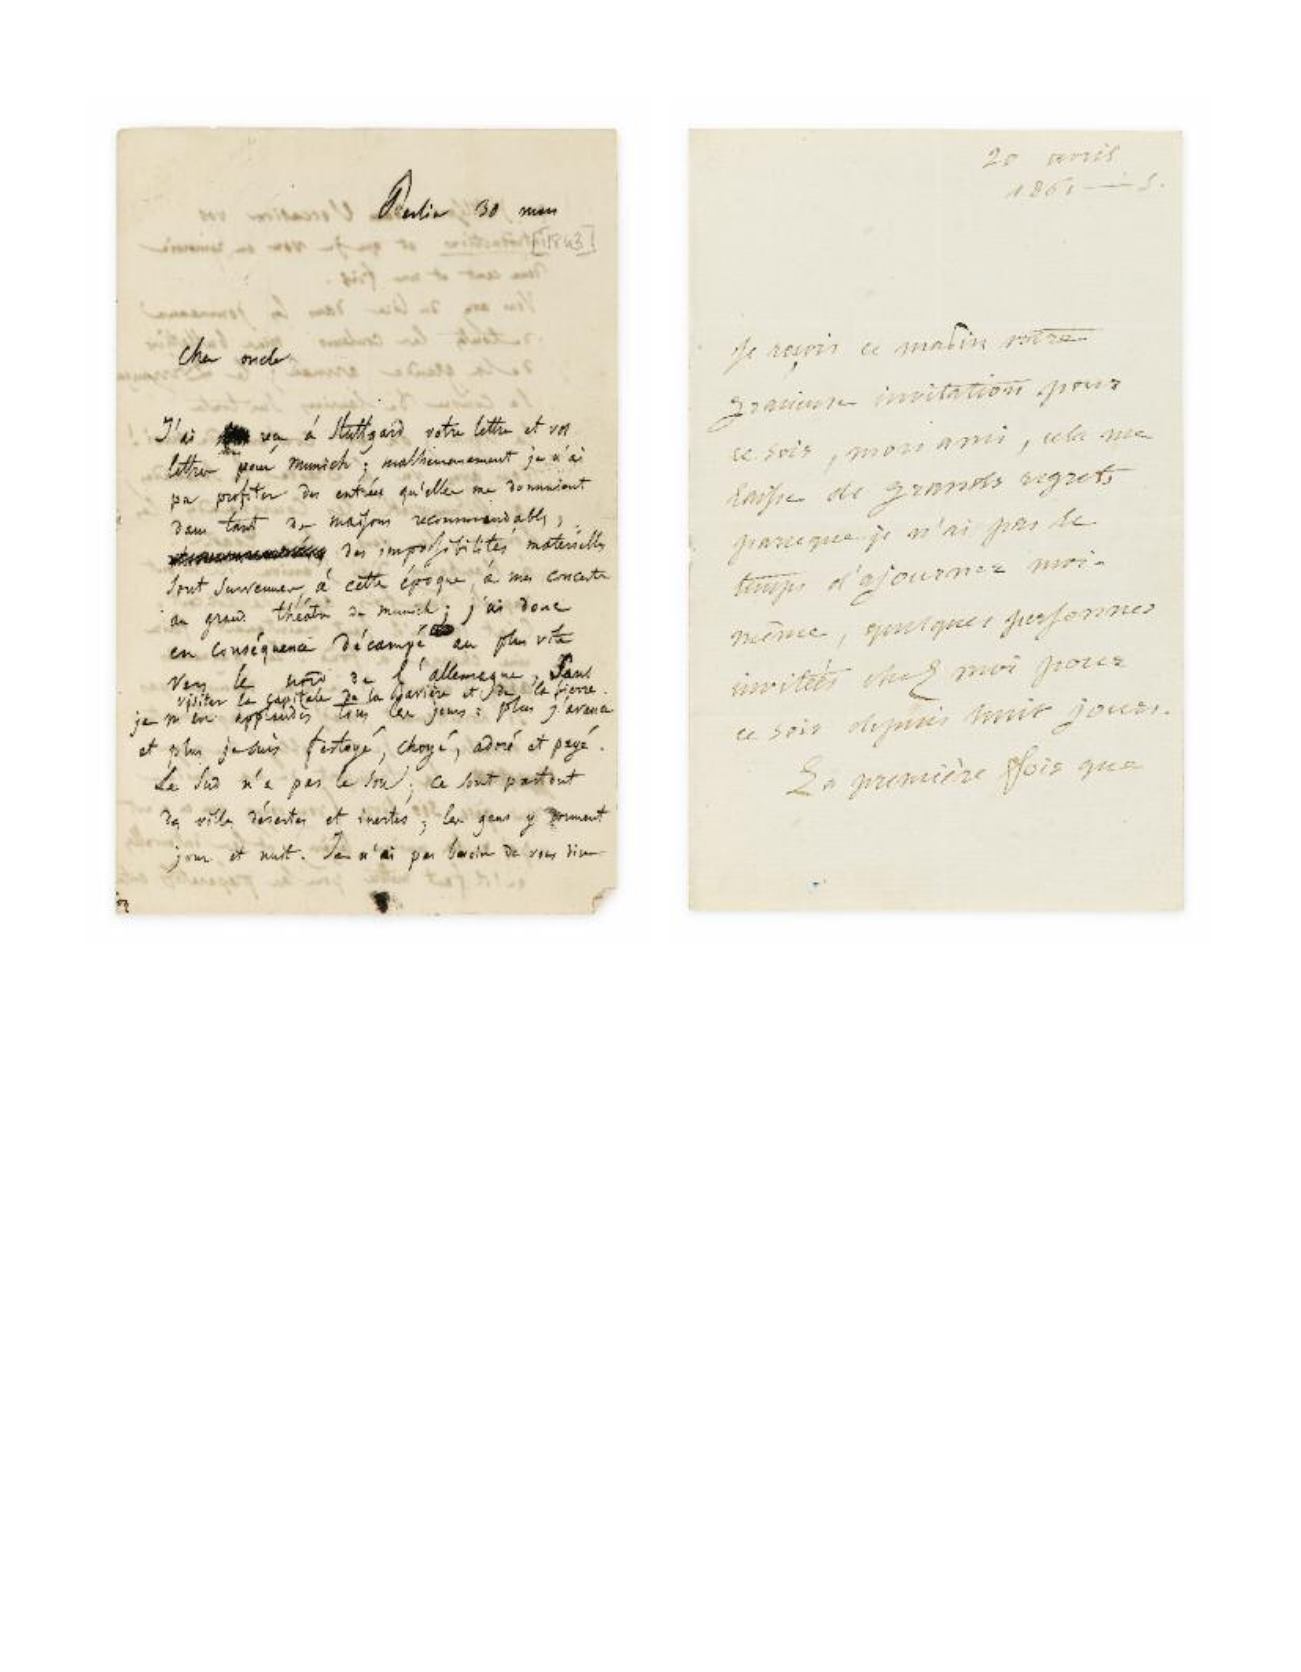 Berlin 30 mars
[1843]
Cher oncle
J'ai reçu à Stuttgard votre lettre et vos
lettres pour Munich ; malheureusement je n'ai
pu profiter des entrées qu'elles me donnaient
dans tant de maisons recommandables,
des impossibilités matérielles
sont survenues, à cette époque, à mes concerts
au grand théâtre de Munich ; j'ai donc
en conséquence décampé au plus vite
vers le nord de l'allemagne, sans
visiter la capitale de la Bavière et de la bierre.
je m'en applaudis tous les jours : plus j'avance
et plus je suis festoyé, choyé, adoré et payé.
Le Sud n'a pas le sou ; ce sont partout
des villes désertes et inertes ; les gens y dorment
jour et nuit. Je n'ai pas besoin de vous dire
20 avril
186
Je reçois ce matin votre
gracieuse invitation pour
ce soir, mon ami, cela me
laisse de grands regrets
parceque je n'ai pas le
temps d'ajourner moi-
même, quelques personnes
invitées chez moi pour
ce soir depuis huit jours.
La première fois que